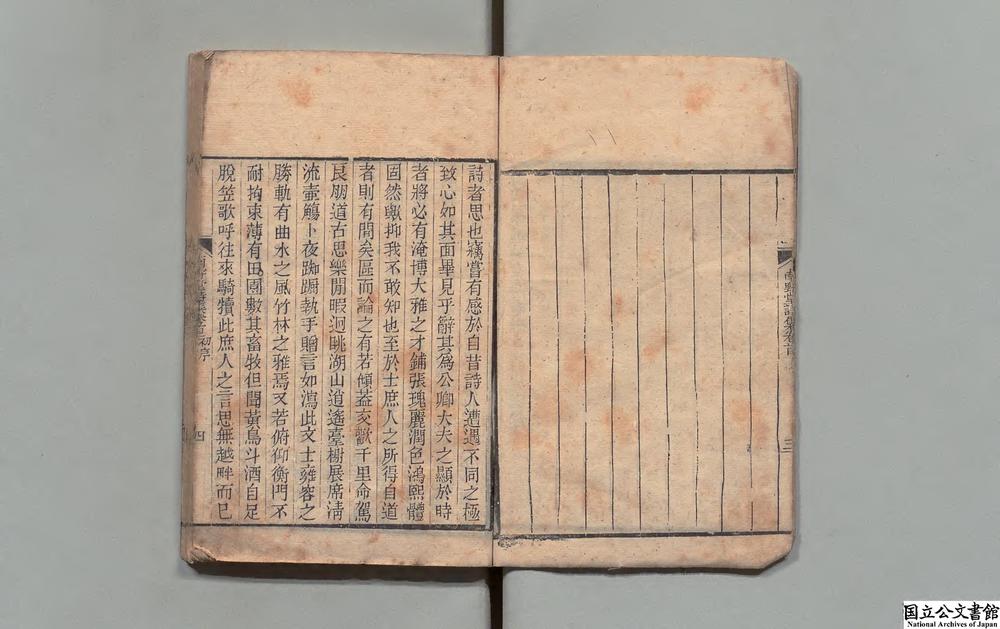 三
詩者思也竊嘗有感於自昔詩人遭遇不同之極
致心如其面畢見乎辭其為公卿大夫之顯於時
者將必有淹博大雅之才鋪張瑰麗潤色鴻熙體
固然歟抑我不敢知也至於士庶人之所得自道
者則有間矣區而論之有若傾蓋交歡千里命駕
良朋道古思樂閒暇迴眺湖山逍遙臺榭展席清
流壺觴卜夜踟蹰執手贈言如瀉此文士雍容之
勝軌有曲水之風竹林之雅焉又若俯仰衡門不
耐拘束薄有田園數其畜牧但聞黃鳥斗酒自足
脫笠歌呼往來騎犢此庶人之言思無越畔而已
初序
四
国立公文書館
National Archives of Japan